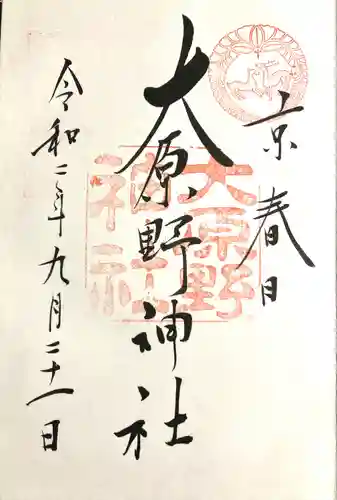 京春日
大原野神社
令和二年九月二十一日
大原野
神社